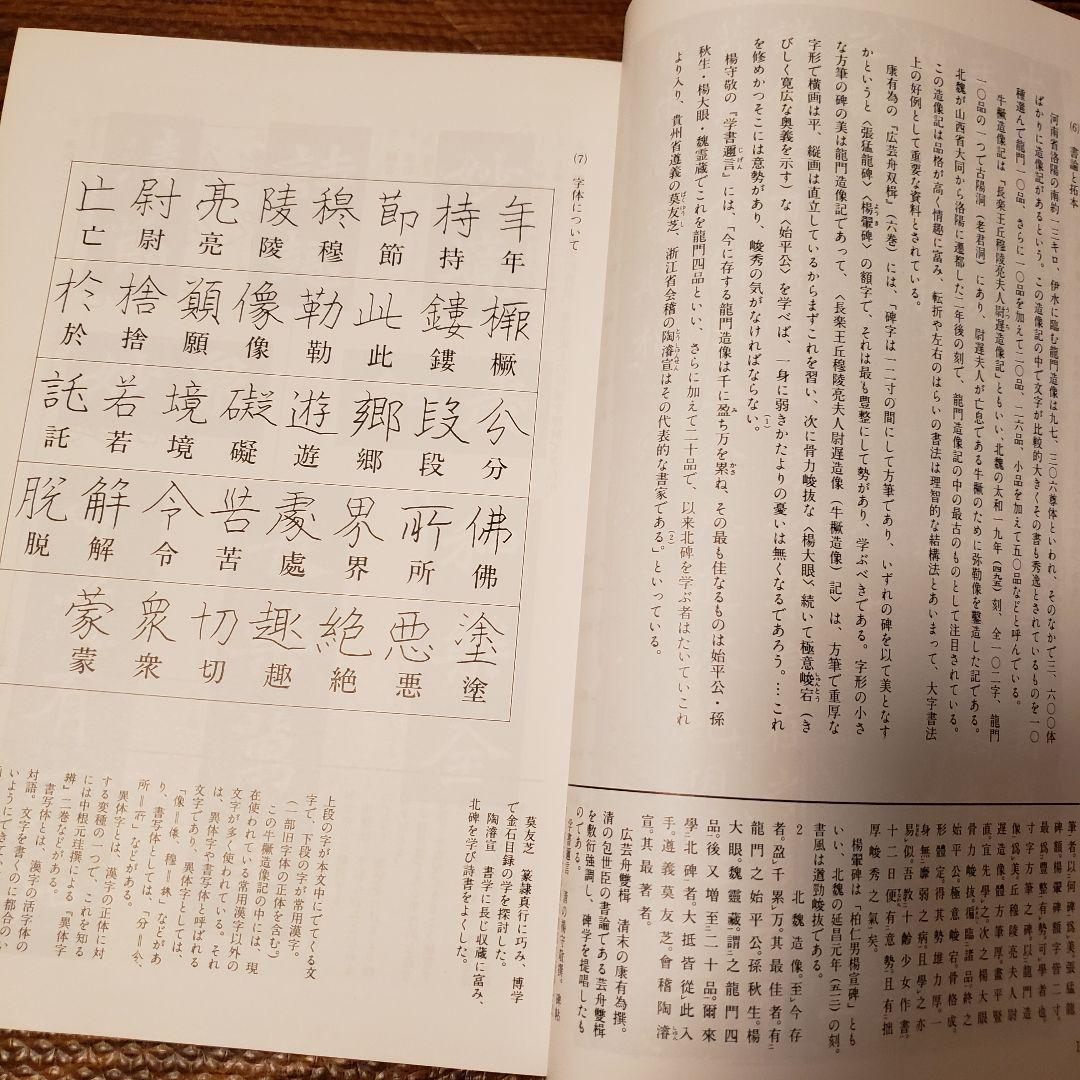 (6) 書論と拓本
河南省洛陽の南約一三キロ、伊水に臨む龍門造像は九七、三〇六尊体といわれ、そのなかで三、六〇〇体
ばかりに造像記があるという。この造像記の中で文字が比較的大きくその書も秀逸とされているものを一〇
種選んで龍門一〇品、さらに一〇品を加えて二〇品、二六品、小品を加えて五〇品などと呼んでいる。
牛橛造像記は「長楽王丘穆陵亮夫人尉遅造像記」ともいい、北魏の太和一九年(四九五)刻、全一〇二字、龍門
一〇品の一つで古陽洞(老君洞)にあり、尉遅夫人が亡息である牛橛のために弥勒像を鑿造した記である。
北魏が山西省大同から洛陽に遷都した二年後の刻で、龍門造像記の中の最古のものとして注目されている。
この造像記は品格が高く情趣に富み、転折や左右のはらいの書法は理智的な結構法とあいまって、大字書法
上の好例として重要な資料とされている。
康有為の『広芸舟双楫』(六巻)には、「碑字は一二寸の間にして方筆であり、いずれの碑を以て美となす
かというと〈張猛龍碑〉〈楊翬碑〉の額字で、それは最も豊整にして勢があり、学ぶべきである。字形の小さ
な方筆の碑の美は龍門造像記であって、〈長楽王丘穆陵亮夫人尉遅造像(牛橛造像)記〉は、方筆で重厚な
字形で横画は平、縦画は直立しているからまずこれを習い、次に骨力峻抜な〈楊大眼〉、続いて極意峻宕(き
びしく寛広な奥義を示す)な〈始平公〉を学べば、一身に弱きかたよりの憂いは無くなるであろう。…これ
を修めかつそこには意勢があり、峻秀の気がなければならない。(1)
楊守敬の『学書邇言』には、「今に存する龍門造像は千に盈ち万を累ね、その最も佳なるものは始平公・孫
秋生・楊大眼・魏霊蔵でこれを龍門四品といい、さらに加えて二十品で、以来北碑を学ぶ者はたいていこれ
より入り、貴州省遵義の莫友芝、浙江省会稽の陶濬宣はその代表的な書家である」(2)といっている。
碑額。楊翬碑額字皆二寸。
最爲豊整有勢。可學者也。
寸字方筆之碑以龍門造
像爲美。丘穆陵亮夫人尉
遅造像。體方筆厚。畫平豎
直。宜先學之。次之楊大眼
骨力峻拔。循臨諸品。終之
始平公。極意峻宕骨格成。
形體定。得其勢雄力厚。一
身無靡弱之病。且學之亦
易。似吾教十齡少女作書。
十二日便有意勢。且有拙
厚峻秀之氣矣。
楊翬碑は「柏仁男楊宣碑」とも
いい、北魏の延昌元年(五一二)の刻。
書風は遒勁峻抜である。
2 北魏造像。至今存
者。盈千累万。其最佳者。有
龍門之始平公。孫秋生。楊
大眼。魏靈藏。謂之龍門四
品。後又増至二十品。爾來
學北碑者。大抵皆從此入
手。遵義莫友芝。會稽陶濬
宣。其最著者。
広芸舟雙楫 清末の康有為撰。
清の包世臣の書論である芸舟雙楫
を敷衍強調し、碑学を提唱したも
のである。
莫友芝 篆隷真行に巧み、博学
で金石目録の学を探討した。
陶濬宣 書学に長じ収蔵に富み、
北碑を学び詩書をよくした。
(7) 字体について
年 持 節 穆 陵 亮 尉 亡
年 持 節 穆 陵 亮 尉 亡
橛 鏤 此 勒 像 願 捨 於
橛 鏤 此 勒 像 願 捨 於
分 段 鄉 遊 礙 境 若 託
分 段 郷 遊 礙 境 若 託
佛 所 界 處 苦 令 解 脱
佛 所 界 處 苦 令 解 脱
塗 悪 絶 趣 切 衆 蒙
塗 悪 絶 趣 切 衆 蒙
上段の字が本文中にでてくる文
字で、下段の字が常用漢字。
(一部旧字体の正体を含む。)
この牛橛造像記の中には、現
在使われている常用漢字以外の
文字が多く使われている。それ
は、異体字や書写体と呼ばれる
文字であり、異体字としては、
り、書写体としては、「分‖
所‖」などがある。
異体字とは、漢字の正体に対
する変種の一つで、これを知る
には中根元珪撰による『異体字
辨』二巻などがある。
書写体とは、漢字の活字体の
対語。文字を書くのに都合のい
いようにできて